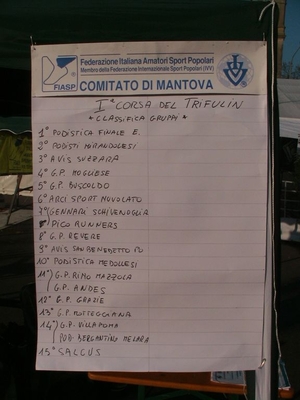 Federazione Italiana Amatori Sport Popolari
Membro della Federazione Internazionale Sport Popolari (IVV)
FIASP
IVV
COMITATO DI MANTOVA
Iª CORSA DEL TRIFULIN
* CLASSIFICA GRUPPI *
1° PODISTICA FINALE E.
2° PODISTI MIRANDOLESI
3° AVIS SUZZARA
4° G.P. MOGLIESE
5° G.P. BUSCOLDO
6° ARCI SPORT NUVOLATO
7° GENNARI SCHIVENOGLIA
PICO RUNNERS
8° G.P. REVERE
9° AVIS SAN BENEDETTO PO
10° PODISTICA MEDOLLESI
11° G.P. RIMO MAZZOLA
G.P. ANDES
12° G.P. GRAZIE
13° G.P. MOTTEGGIANA
14° G.P. VILLAPOMA
POD. BERGANTINO MELARA
15° SALCUS